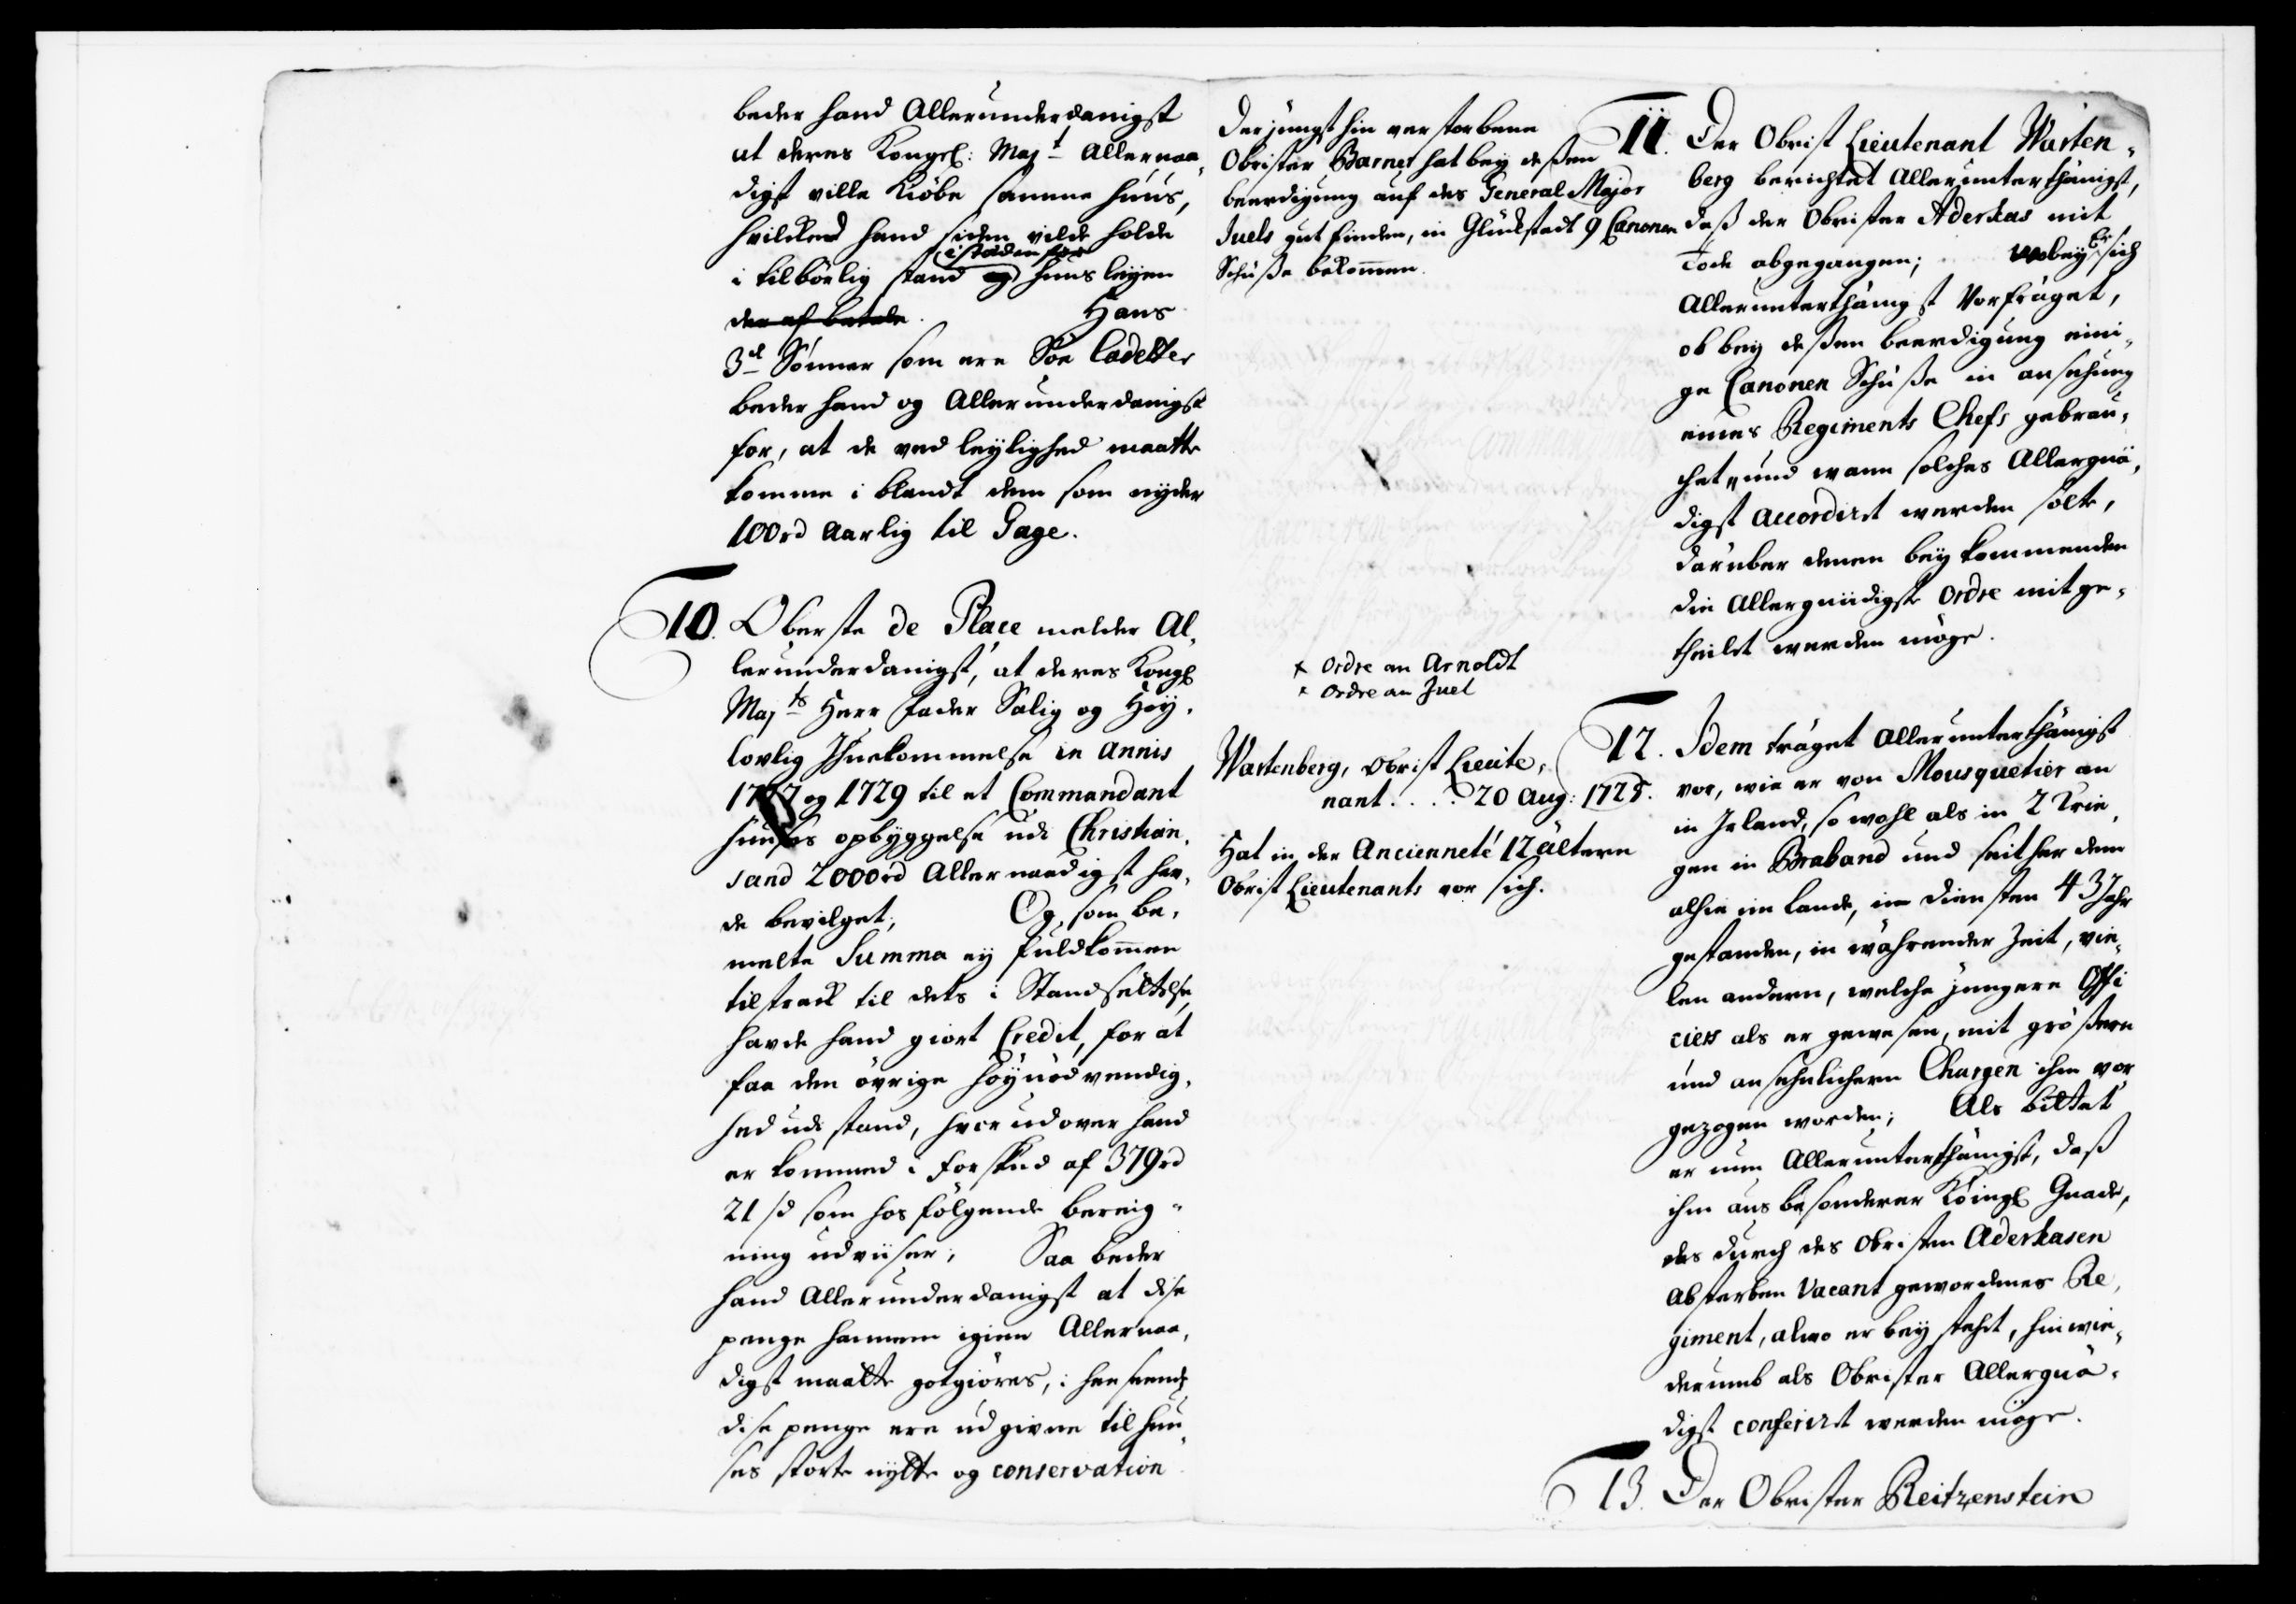 beder hand Allerunderdanigst
at deres Kongel: Maj.t Allernaa¬
digst ville Kiöbe samme huus,
hvilcked hand siden vilde holde
i staden for
i tilbörlig stand og huusleyen
der af betale. Hans
3de Sönner som ere Söe Cadetter
beder hand og Allerunderdanigst
for, at de ved leylighed maatte
komme i blandt dem som nyder
100rd Aarlig til Gage.
10. Oberste de Place melder Al¬
lerunderdanigst, at deres Kongl
Maj.ts Herr Fader Salig og Höy¬
lovlig Ihuekommelse in Annis
1727 og 1729 til et Commandant
huuses opbyggelse udi Christian¬
sand 2000rd Allernaadigst hav¬
de bevilget; Og, som be¬
melte Summa ey fuldkommen
tilstrack til dets i Standsettelse,
havde hand giort Credit, for at
faa den övrige höynödvendig¬
hed udi stand, hvor udover hand
er kommed i forskud af 379rd
21 sd som hos fölgende bereig¬
ning udviiser; Saa beder
hand Allerunderdanigst at dise
penge hannem igien Allernaa¬
digst maatte gotgiöres, i henseende
dise penge ere udgivne til huu¬
ses störte nytte og conservation
Der jüngst hin verstorbene
Obrister Barner hat bey deßen
beerdigung auf des General Major
Juels gut finden, in Glückstadt 9 Canonen
Schüße bekommen.
x Ordre an Arnoldt
x Ordre an Juel
Wartenberg, Obrist Lieute¬
nant.... 20 Aug: 1725.
Hat in der Ancienneté 12 ältere
Obrist Lieutenants vor sich.
11. Der Obrist Lieutenant Warten¬
berg berichtet Allerunterthänigst,
daß der Obrister Aderkas mit
Tode abgegangen; wobey Er sich
Allerunterthänigst Vorfräget,
ob bey deßen beerdigung eini¬
ge Canonen Schüße in ansehung
eines Regiments Chefs gebrau¬
chet, und wann solches Allergnä¬
digst accordiret werden solte,
darüber denen bey kommenden
die Allergnädigste Ordre mitge¬
theilet werden möge.
12. Idem träget Allerunterthänigst
vor, wie er von Mousquetier an
in Irland, so wohl als in 2 Krie¬
gen in Braband und seither dem
alhie im Lande, in diensten 43 Jahr
gestanden, in währender Zeit, vie¬
len andern, welche jüngere Offi
ciers als er gewesen, mit größere
und ansehnlichern Chargen ihm vor
gezogen worden; Als bittet
er nun Allerunterthänigst, daß
ihm aus besonderer Königl Gnade,
des durch des Obristen Aderkasen
Absterben Vacant gewordenes Re¬
giment, alwo er bey stehet, hinwie¬
derumb als Obrister Allergnä¬
digst conferiret werden möge.
13. Der Obrister Reitzenstein